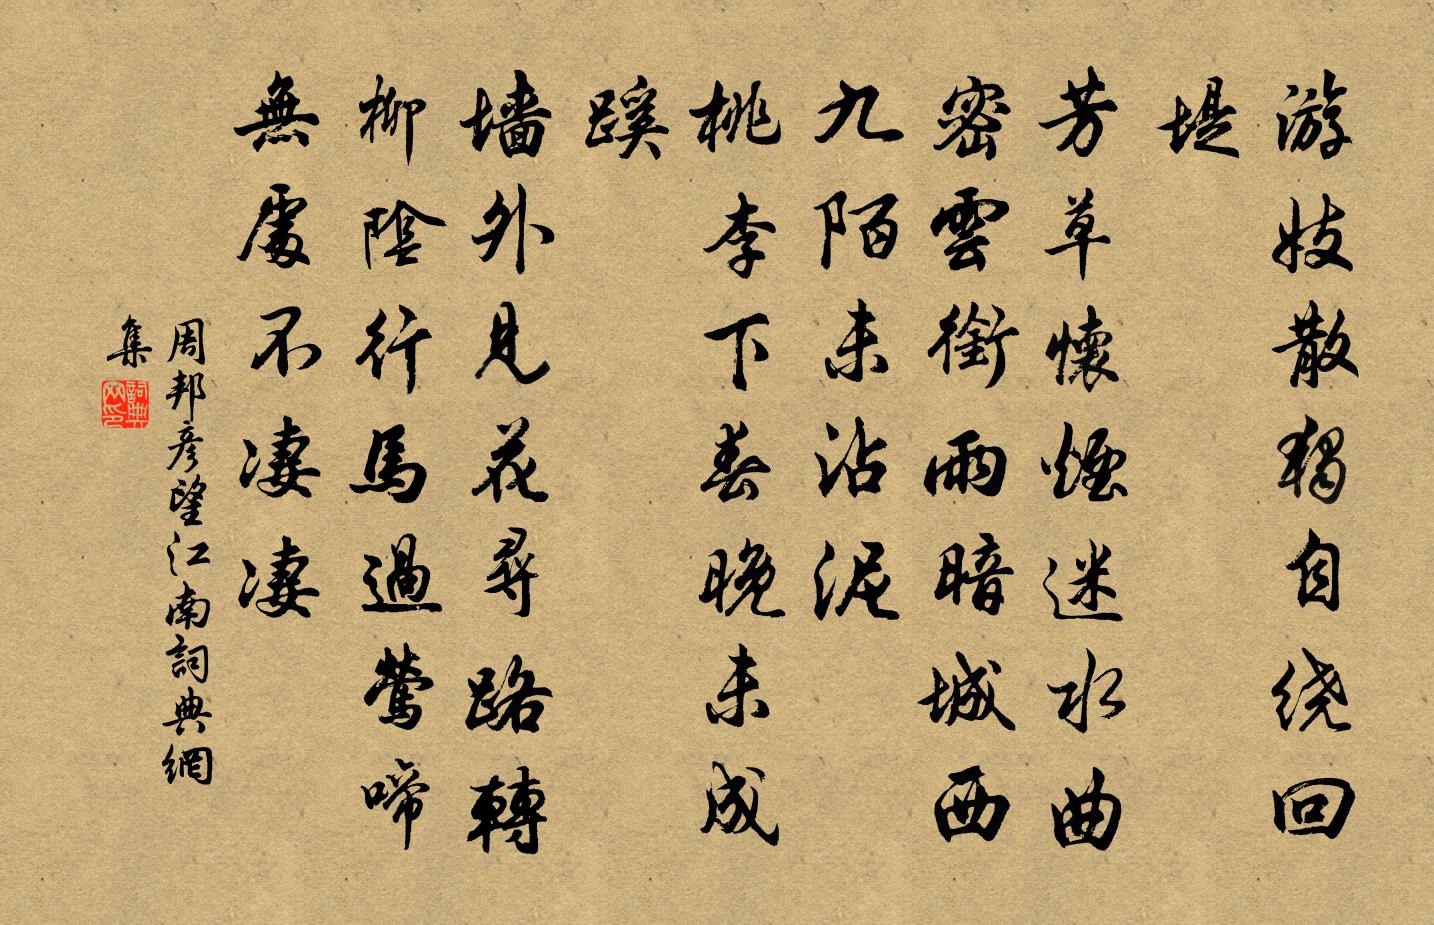 游妓散獨自绕回
堤
芳草懷煙迷水曲
密雲銜雨暗城西
九陌未沾泥
桃李下春晚未成
蹊
墻外見花尋路轉
柳陰行馬過鶯啼
無處不凄凄
周邦彦望江南詞典網
集
詞典
网印